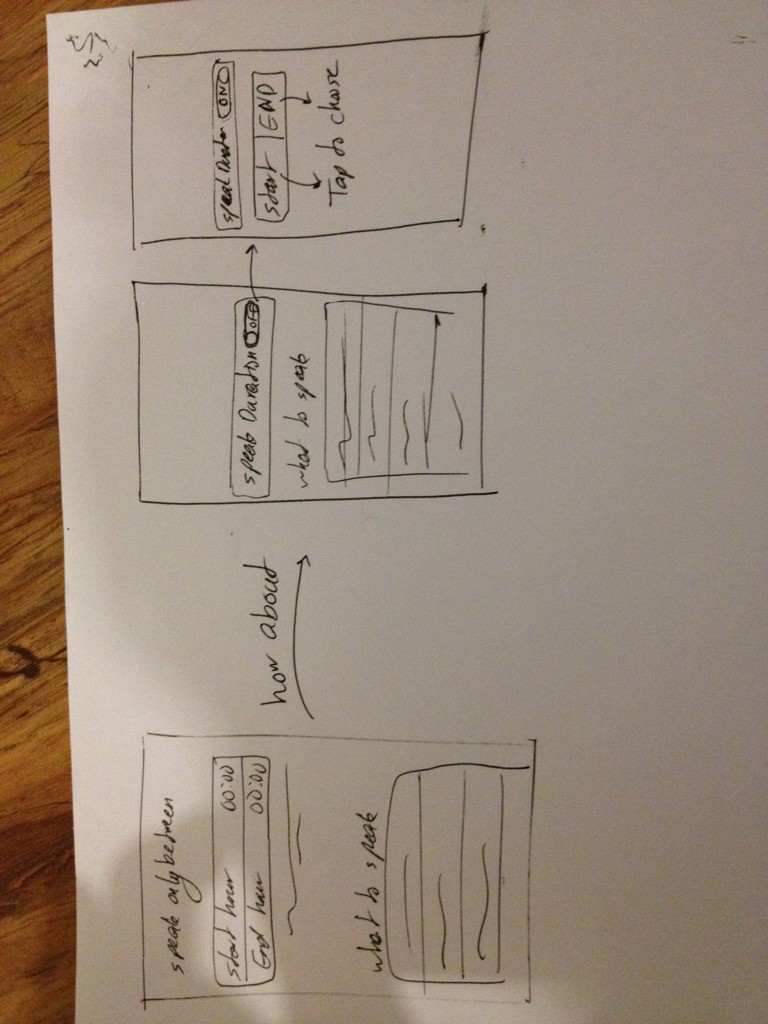 speak only between
Start hour 00:00
End hour 00:00
what to speak
how about
speak Duration OFF
what to speak
speak Duration ON
start | END
Tap to choose